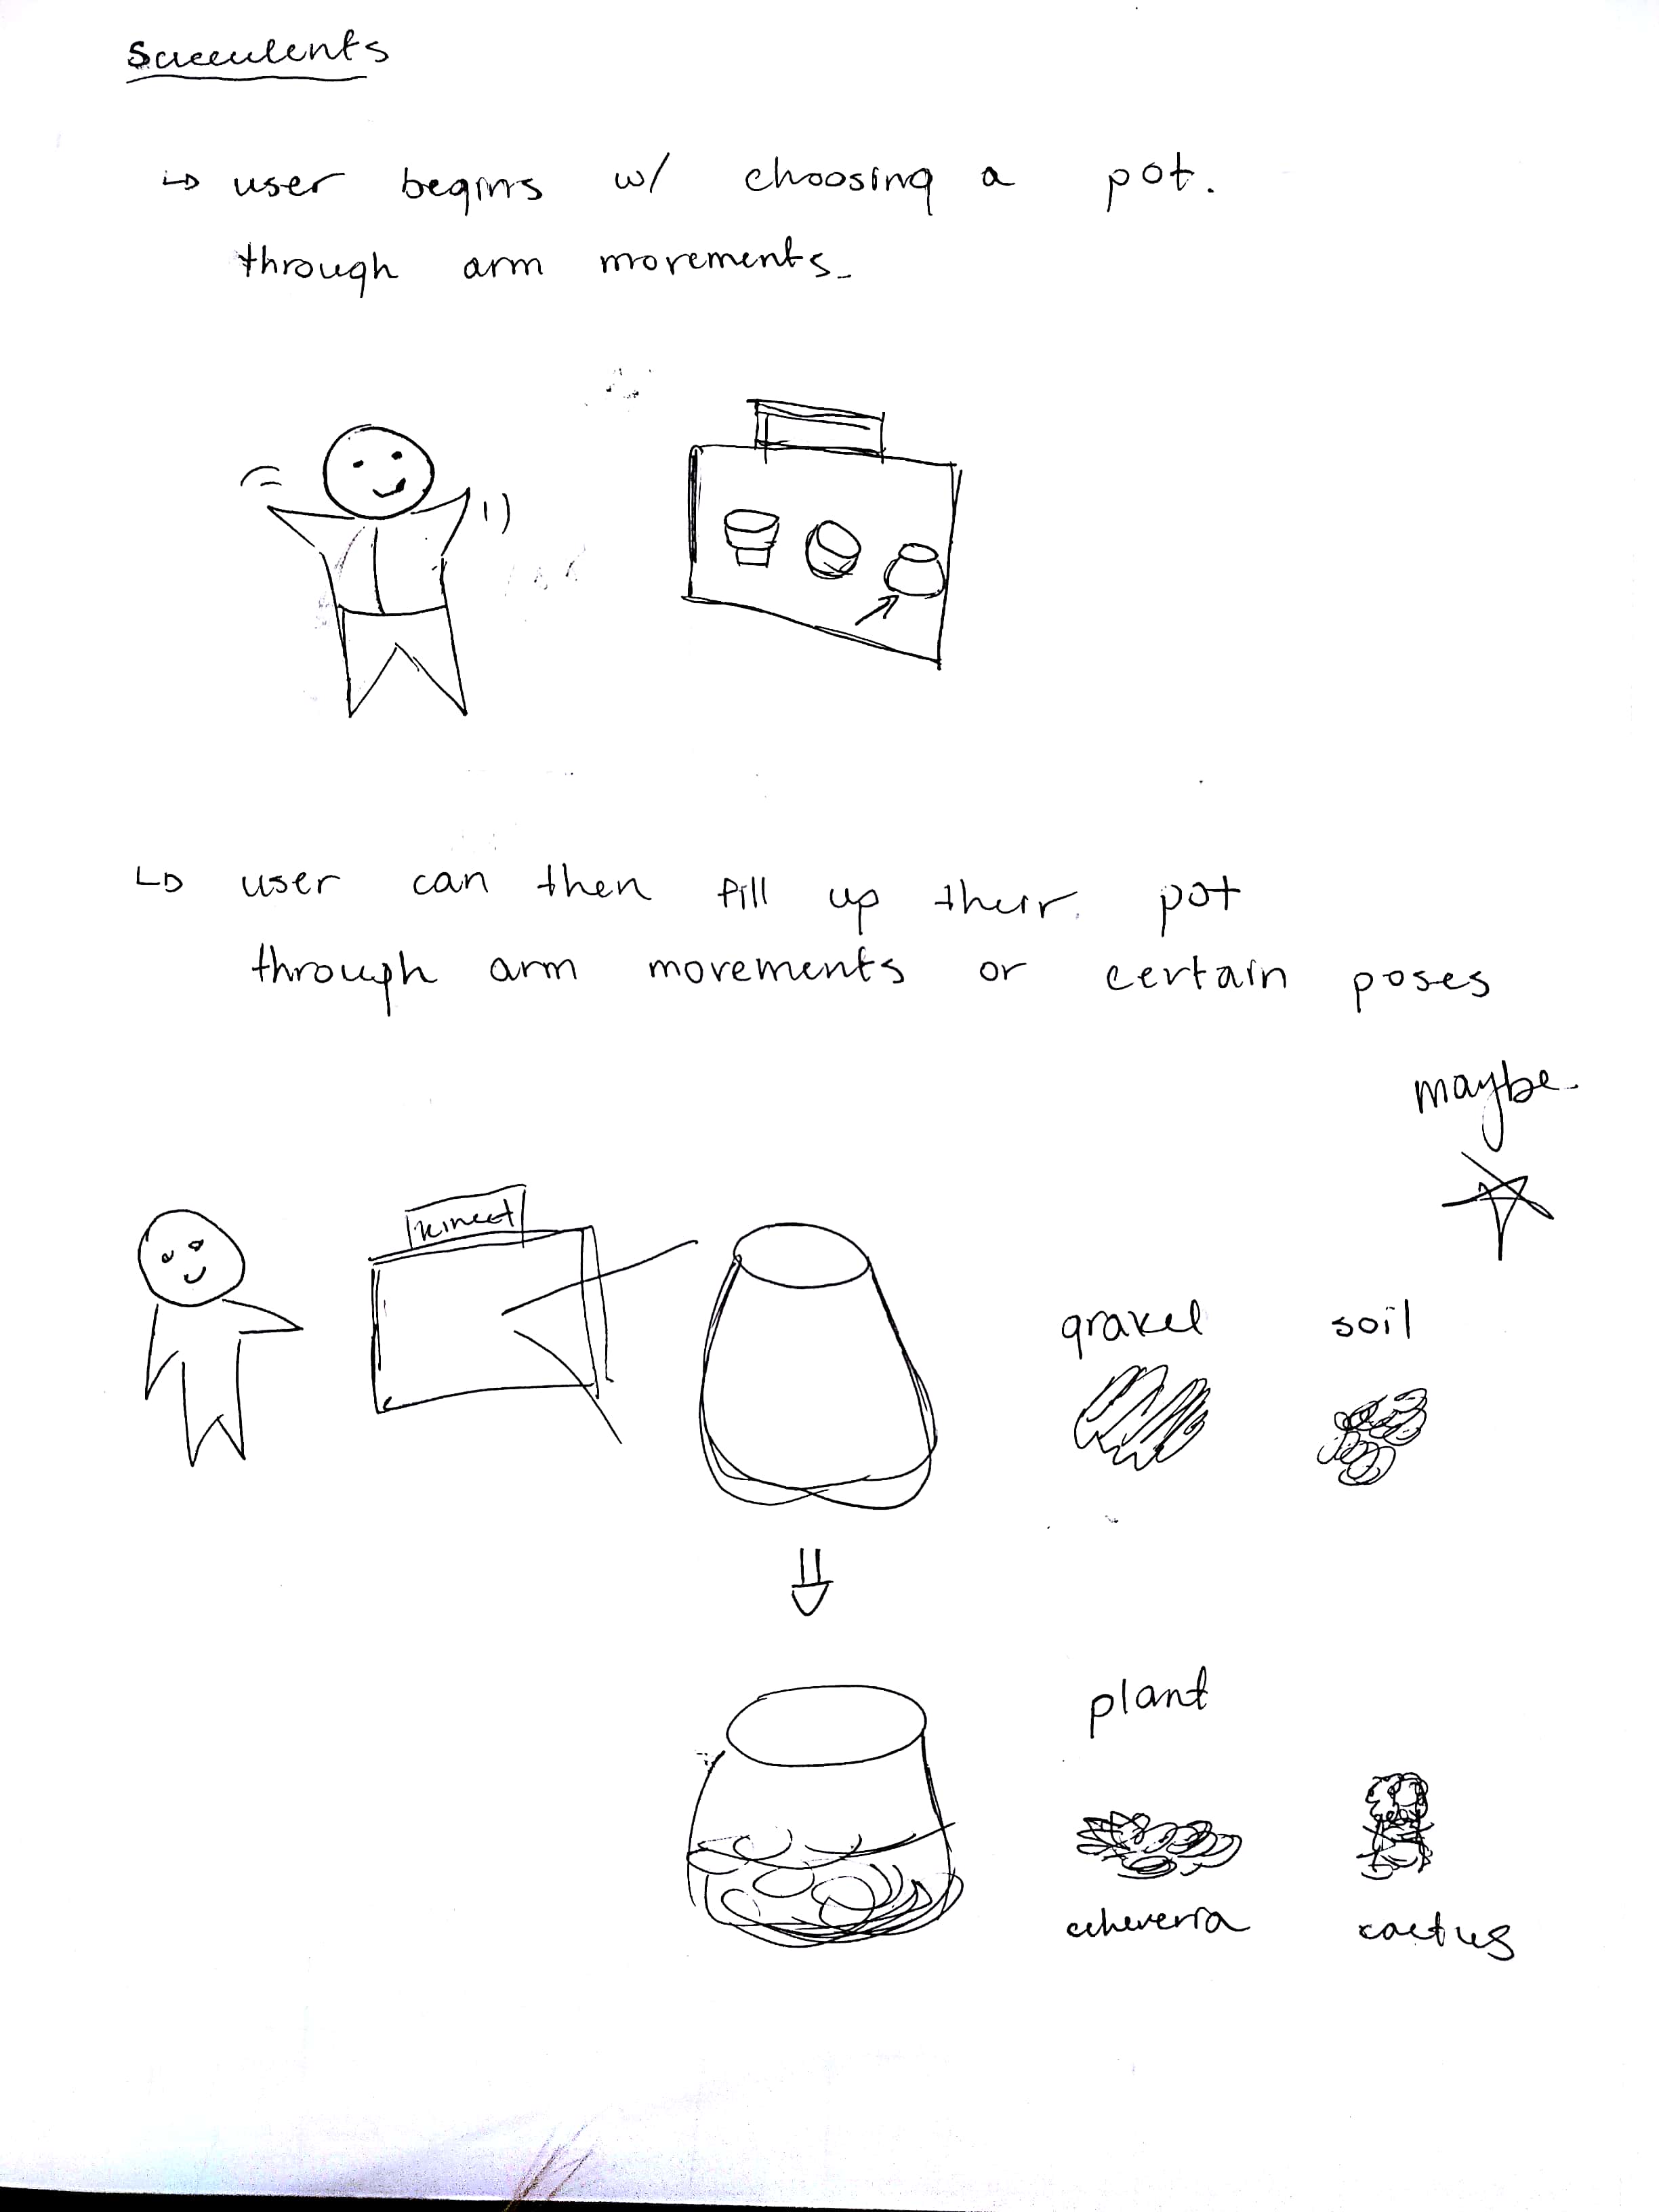 Succulents
↳ user begins w/ choosing a pot.
through arm movements.
↳ user can then fill up their pot
through arm movements or certain poses
maybe
kinect
gravel soil
plant
echeveria cactus